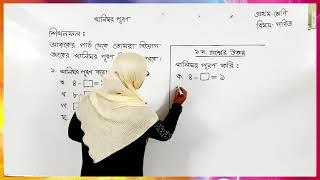 খালিঘর পূরণ
প্রথম-শ্রেণি
বিষয়- গণিত
শিখনফল:
আজকের পাঠ থেকে তোমরা বিয়োগ
অংকের খালিঘর পূরণ
২. খালিঘর পূরণ
ক. ৪-□=
খ. ৮
গ.
ঘ.
২ নং প্রশ্নের উত্তর
খালিঘর পূরণ করি:
ক. ৪-□=১